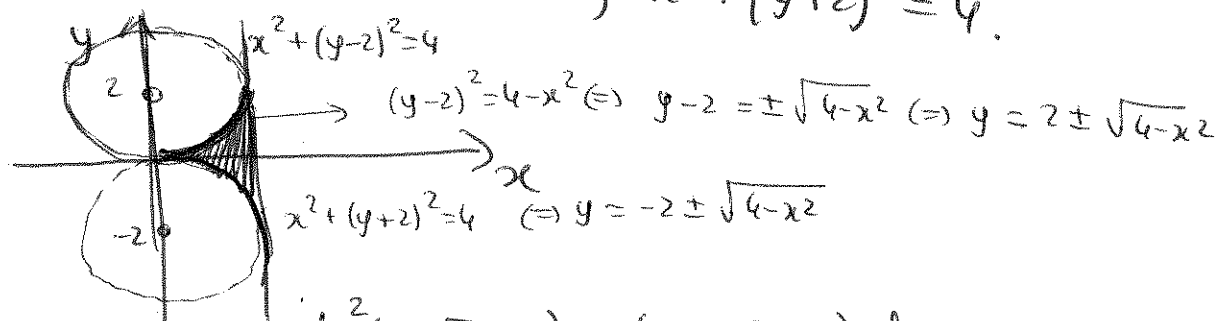 (y+2) = 4.
y x²+(y-2)²=4
2 (y-2)²=4-x² (=) y-2 = ±√(4-x²) (=) y = 2±√(4-x²)
x
x²+(y+2)²=4 (=) y = -2±√(4-x²)
-2
2